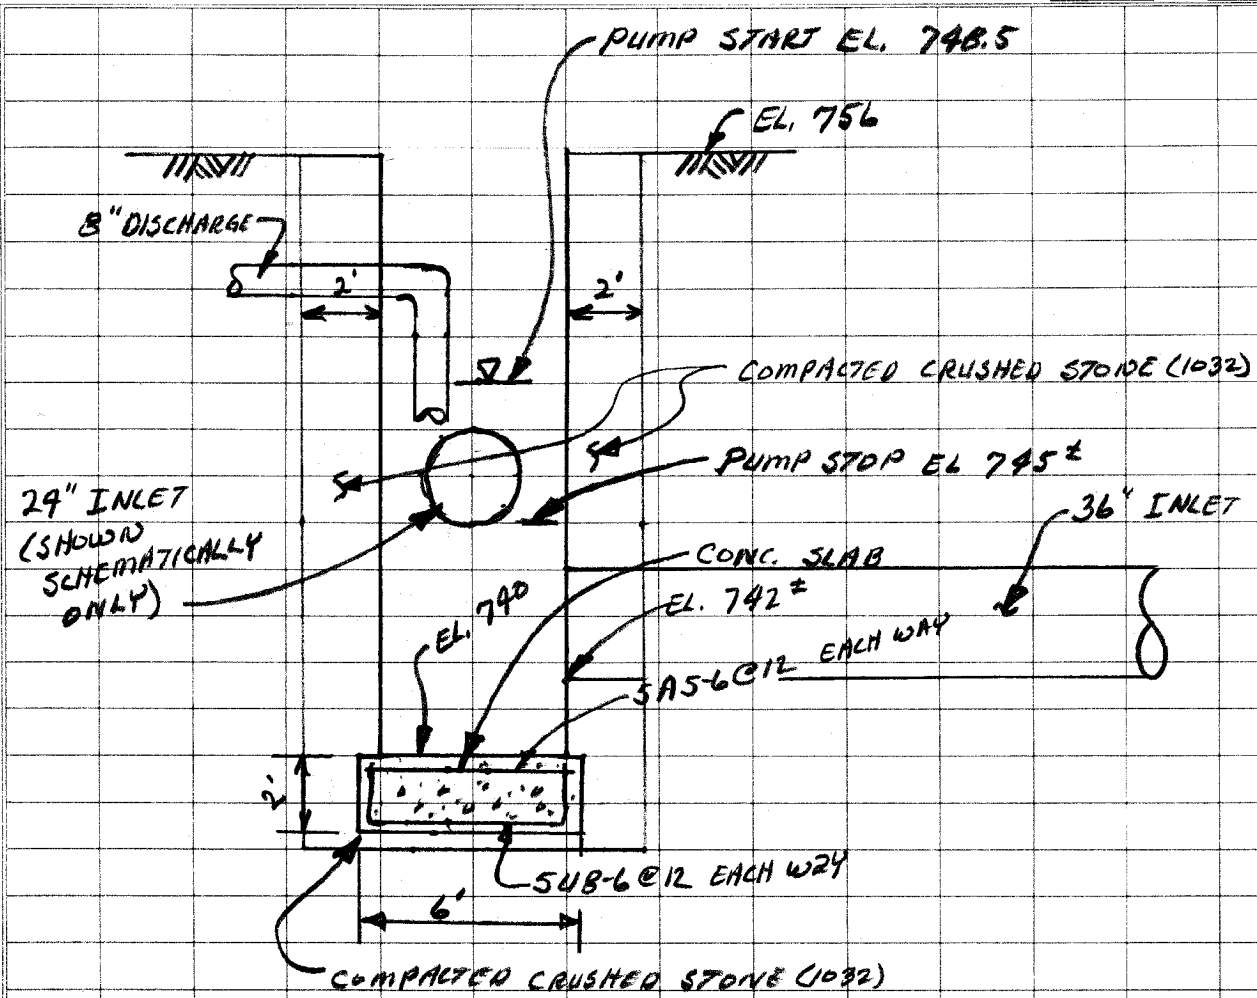 PUMP START EL. 748.5
EL. 756
8" DISCHARGE
2'
2'
COMPACTED CRUSHED STONE (1032)
PUMP STOP EL 745±
24" INLET
(SHOWN
SCHEMATICALLY
ONLY)
36" INLET
CONC. SLAB
EL. 740
EL. 742±
5A5-6@12 EACH WAY
2'
5UB-6@12 EACH WAY
6'
COMPACTED CRUSHED STONE (1032)